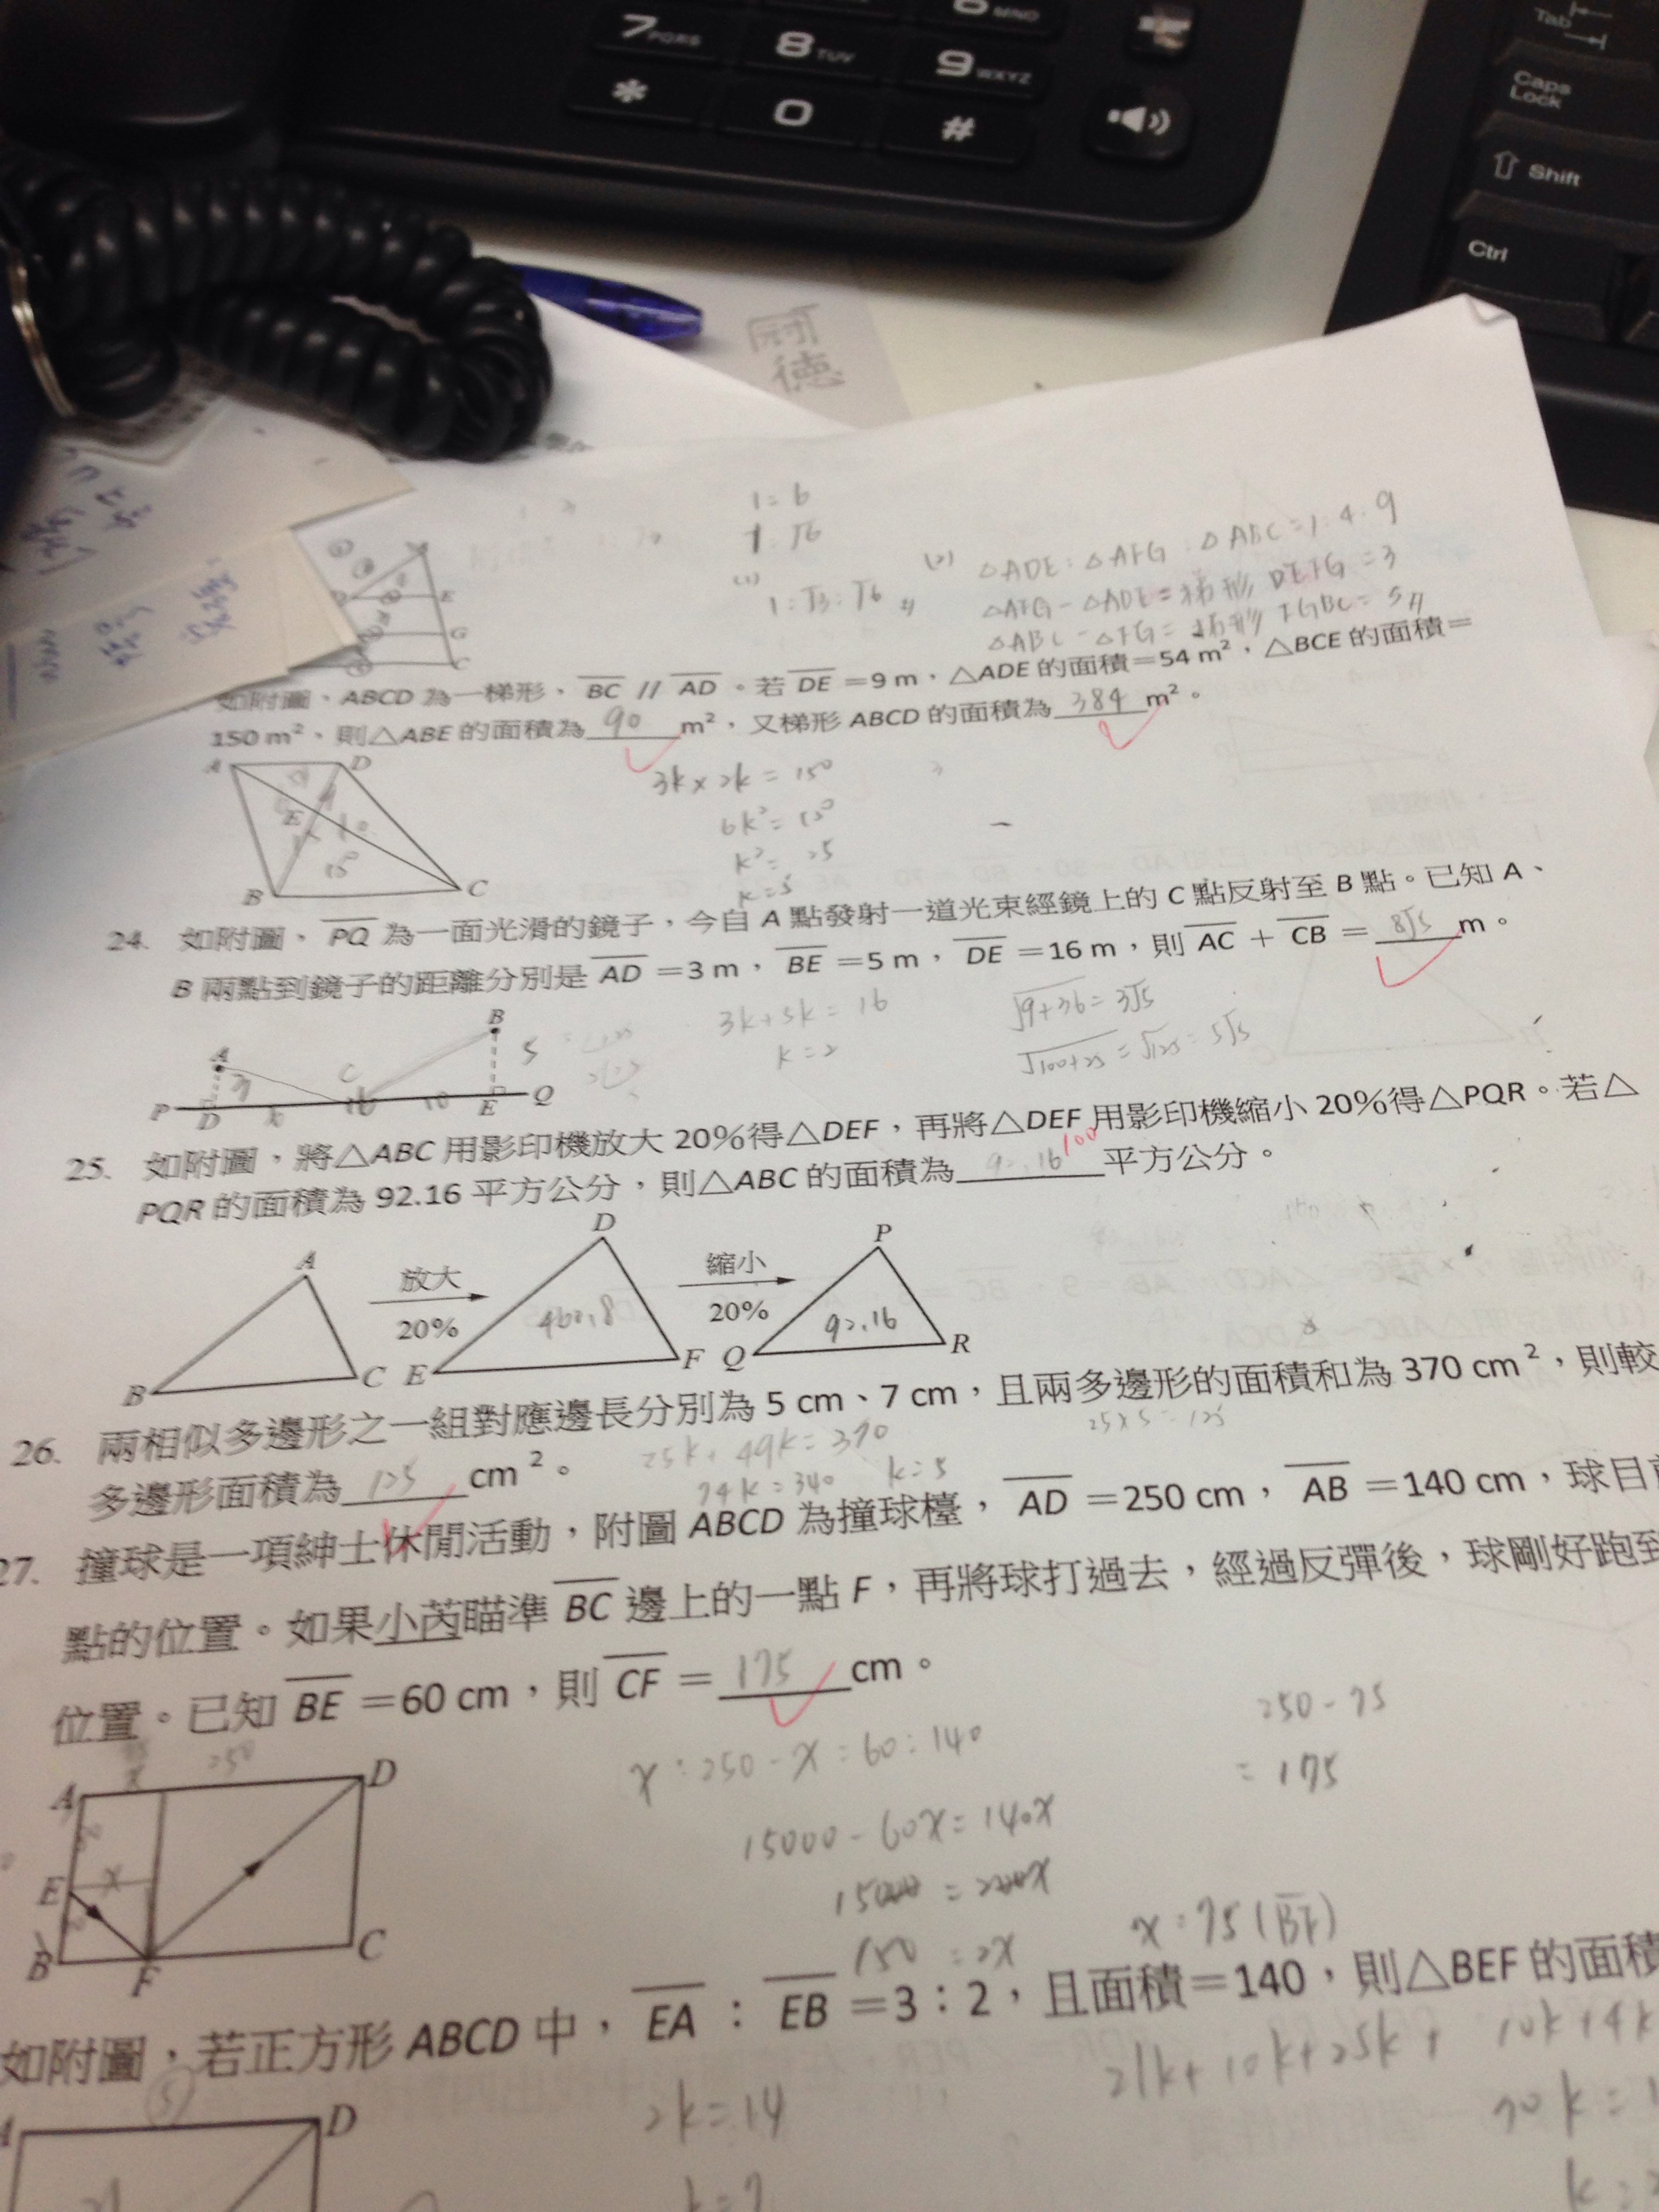 7PQRS
8TUV
9WXYZ
*
0
#
Tab
Caps
Lock
Shift
Ctrl
德
1=6
1:√6
(1)
1:√3:√6
(2) △ADE:△AFG:△ABC=1:4:9
△AFG-△ADE=梯形 DEFG=3
如附圖、ABCD 為一梯形、BC // AD。若 DE =9 m,△ADE 的面積=54 m²,△BCE 的面積=
150 m²、則△ABE 的面積為 90 m²,又梯形 ABCD 的面積為 384 m²。
A D
E
15°
B C
3k×2k=150
6k²=150
k²=25
k=5
24. 如附圖、PQ 為一面光滑的鏡子,今自 A 點發射一道光束經鏡上的 C 點反射至 B 點。已知 A、
B 兩點到鏡子的距離分別是 AD =3 m, BE =5 m, DE =16 m,則 AC + CB = 8√5 m。
3k+5k=16
k=2
√9+36=3√5
√100+25=√125=5√5
A B
3 C 5
P D 16 10 E Q
25. 如附圖,將△ABC 用影印機放大 20%得△DEF,再將△DEF 用影印機縮小 20%得△PQR。若△
PQR 的面積為 92.16 平方公分,則△ABC 的面積為 92.16 100 平方公分。
A D P
放大 縮小
20% 20%
460.8 92.16
B C E F Q R
26. 兩相似多邊形之一組對應邊長分別為 5 cm、7 cm,且兩多邊形的面積和為 370 cm²,則較
多邊形面積為 125 cm²。
25k+49k=370
74k=340 k=5
25×5=125
27. 撞球是一項紳士休閒活動,附圖 ABCD 為撞球檯, AD =250 cm, AB =140 cm,球目前
點的位置。如果小芮瞄準 BC 邊上的一點 F,再將球打過去,經過反彈後,球剛好跑到
位置。已知 BE =60 cm,則 CF = 175 cm。
x:250-x=60:140
15000-60x=140x
15000=200x
150=2x
x=75(BF)
250-75
=175
x 250
A D
E x
B F C
如附圖,若正方形 ABCD 中, EA : EB =3:2,且面積=140,則△BEF 的面積
21k+10k+25k+10k+4k
2k=14
A D